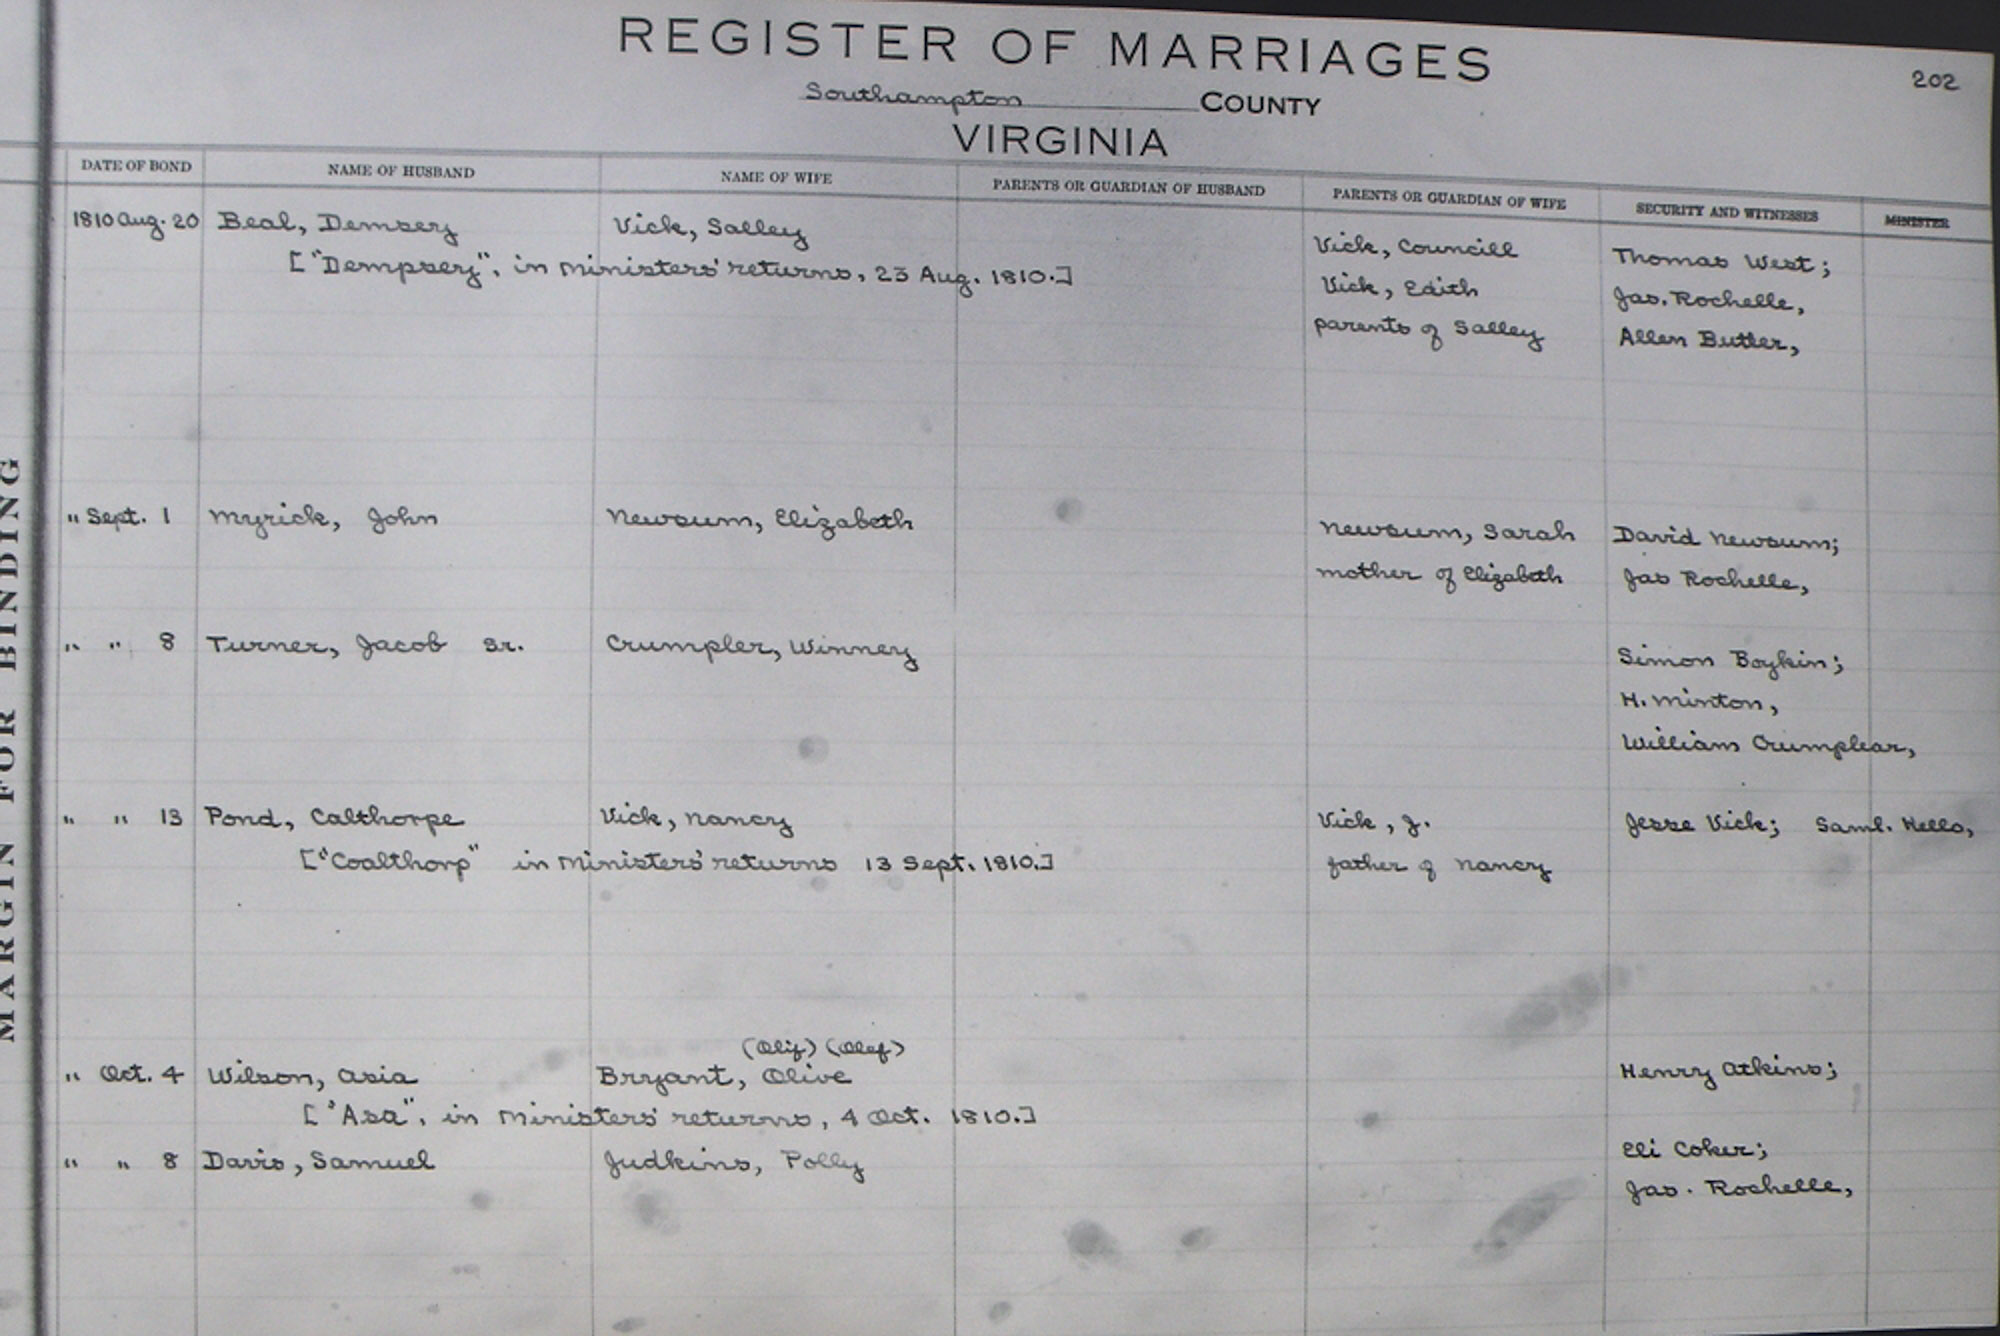 REGISTER OF MARRIAGES
202
Southampton COUNTY
VIRGINIA
DATE OF BOND NAME OF HUSBAND NAME OF WIFE PARENTS OR GUARDIAN OF HUSBAND PARENTS OR GUARDIAN OF WIFE SECURITY AND WITNESSES MINISTER
1810 Aug. 20 Beal, Demsey Vick, Salley Vick, Councill Thomas West;
["Dempsey", in Ministers' returns, 23 Aug. 1810.] Vick, Edith Jas. Rochelle,
parents of Salley Allen Butler,
" Sept. 1 Myrick, John Newsum, Elizabeth Newsum, Sarah David Newsum;
mother of Elizabeth Jas Rochelle,
" " 8 Turner, Jacob Sr. Crumpler, Winney Simon Boykin;
H. Minton,
William Crumplear,
" " 13 Pond, Calthorpe Vick, Nancy Vick, J. Jesse Vick; Saml. Kello,
["Coalthorp" in Ministers' returns 13 Sept. 1810.] father of Nancy
(Olif) (Olef)
" Oct. 4 Wilson, Asia Bryant, Olive Henry Atkins;
["Asa", in Ministers' returns, 4 Oct. 1810.]
" " 8 Davis, Samuel Judkins, Polly Eli Coker;
Jas. Rochelle,
MARGIN FOR BINDING